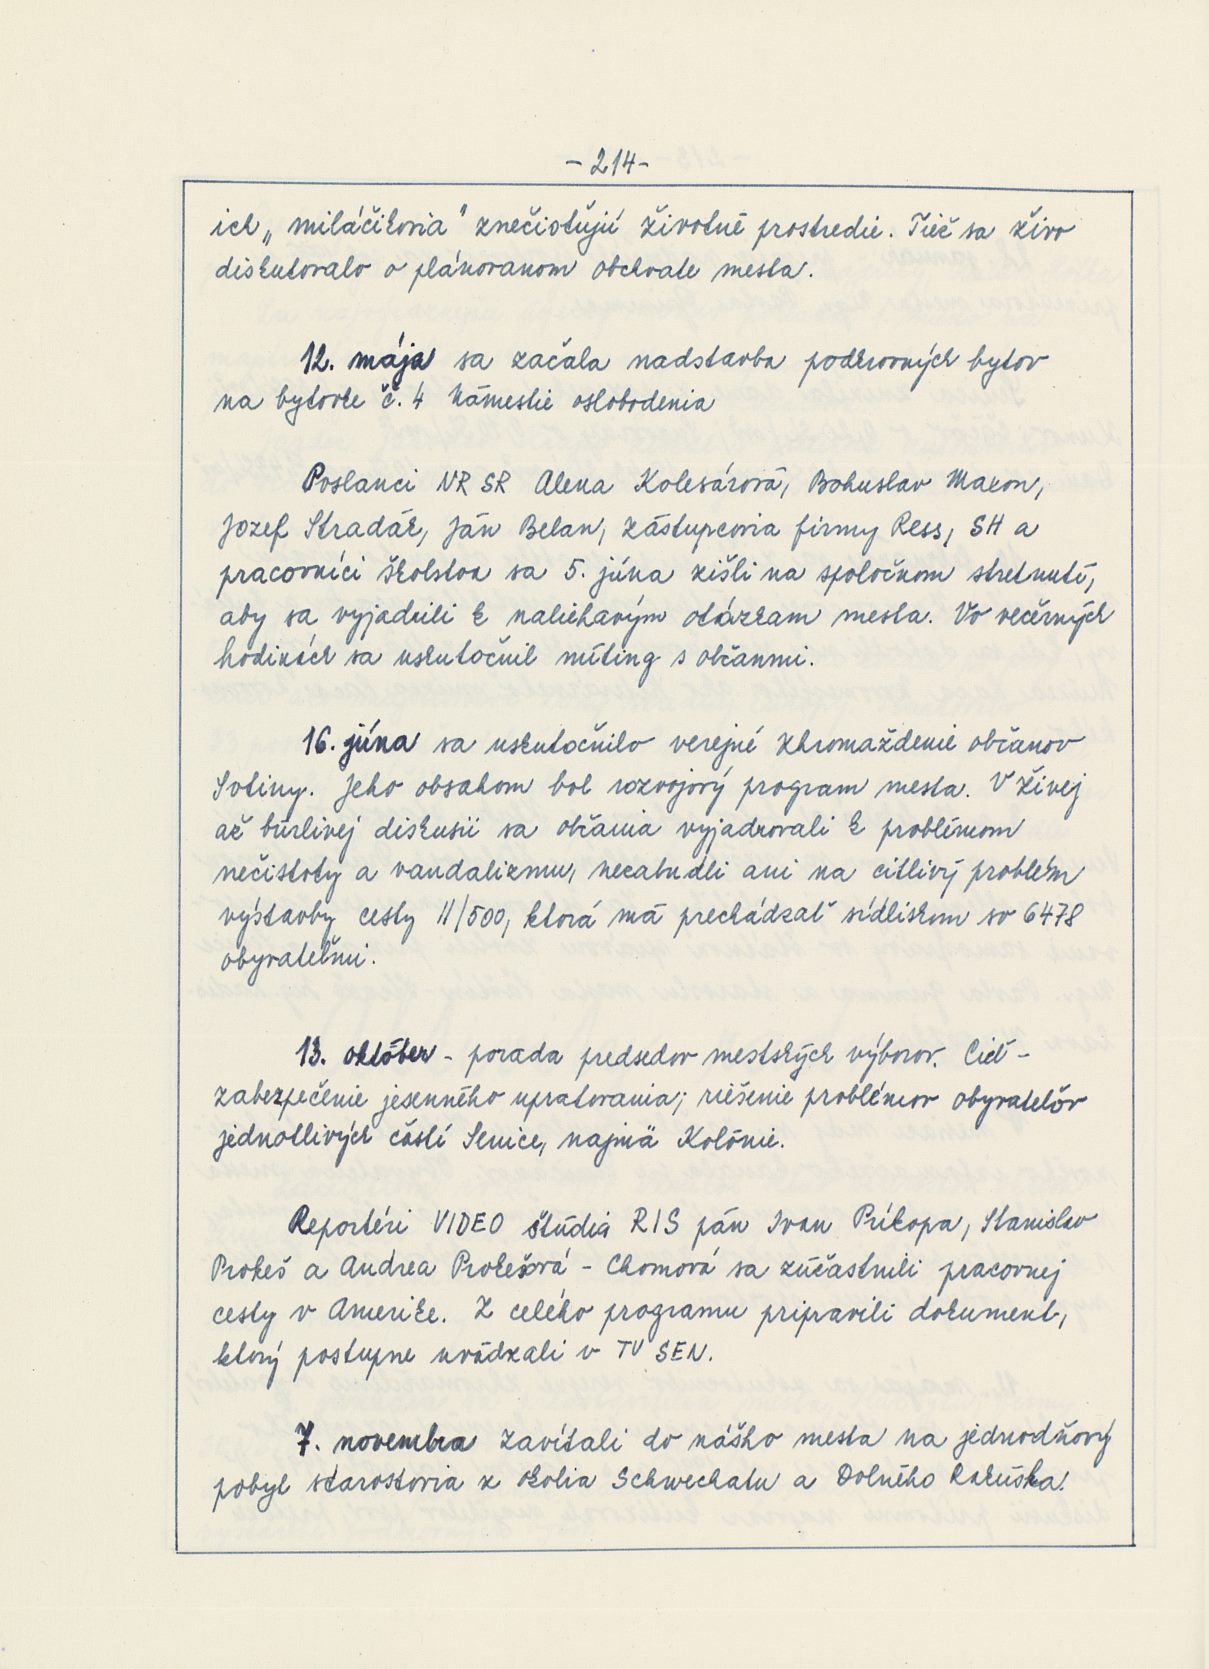 - 214 -
ich „miláčikovia" znečisťujú životné prostredie. Tiež sa živo
diskutovalo o plánovanom obchvate mesta.
12. mája sa začala nadstavba podkrovných bytov
na bytovke č. 4 Námestie oslobodenia
Poslanci NR SR Alena Kolesárová, Bohuslav Macon,
Jozef Stradák, Ján Belan, zástupcovia firmy Ress, SH a
pracovníci školstva sa 5. júna zišli na spoločnom stretnutí,
aby sa vyjadrili k naliehavým otázkam mesta. Vo večerných
hodinách sa uskutočnil míting s občanmi.
16. júna sa uskutočnilo verejné zhromaždenie občanov
Sotiny. Jeho obsahom bol rozvojový program mesta. V živej
až búrlivej diskusii sa občania vyjadrovali k problémom
nečistoty a vandalizmu, nezabudli ani na citlivý problém
výstavby cesty II/500, ktorá má prechádzať sídliskom so 6478
obyvateľmi.
13. október - porada predsedov mestských výborov. Cieľ -
zabezpečenie jesenného upratovania; riešenie problémov obyvateľov
jednotlivých častí Senice, najmä Kolónie.
Reportéri VIDEO štúdia RIS pán Ivan Príkopa, Stanislav
Prokeš a Andrea Prokešová - Chomová sa zúčastnili pracovnej
cesty v Amerike. Z celého programu pripravili dokument,
ktorý postupne uvádzali v TV SEN.
7. novembra zavítali do nášho mesta na jednodňový
pobyt starostovia z okolia Schwechatu a Dolného Rakúska.